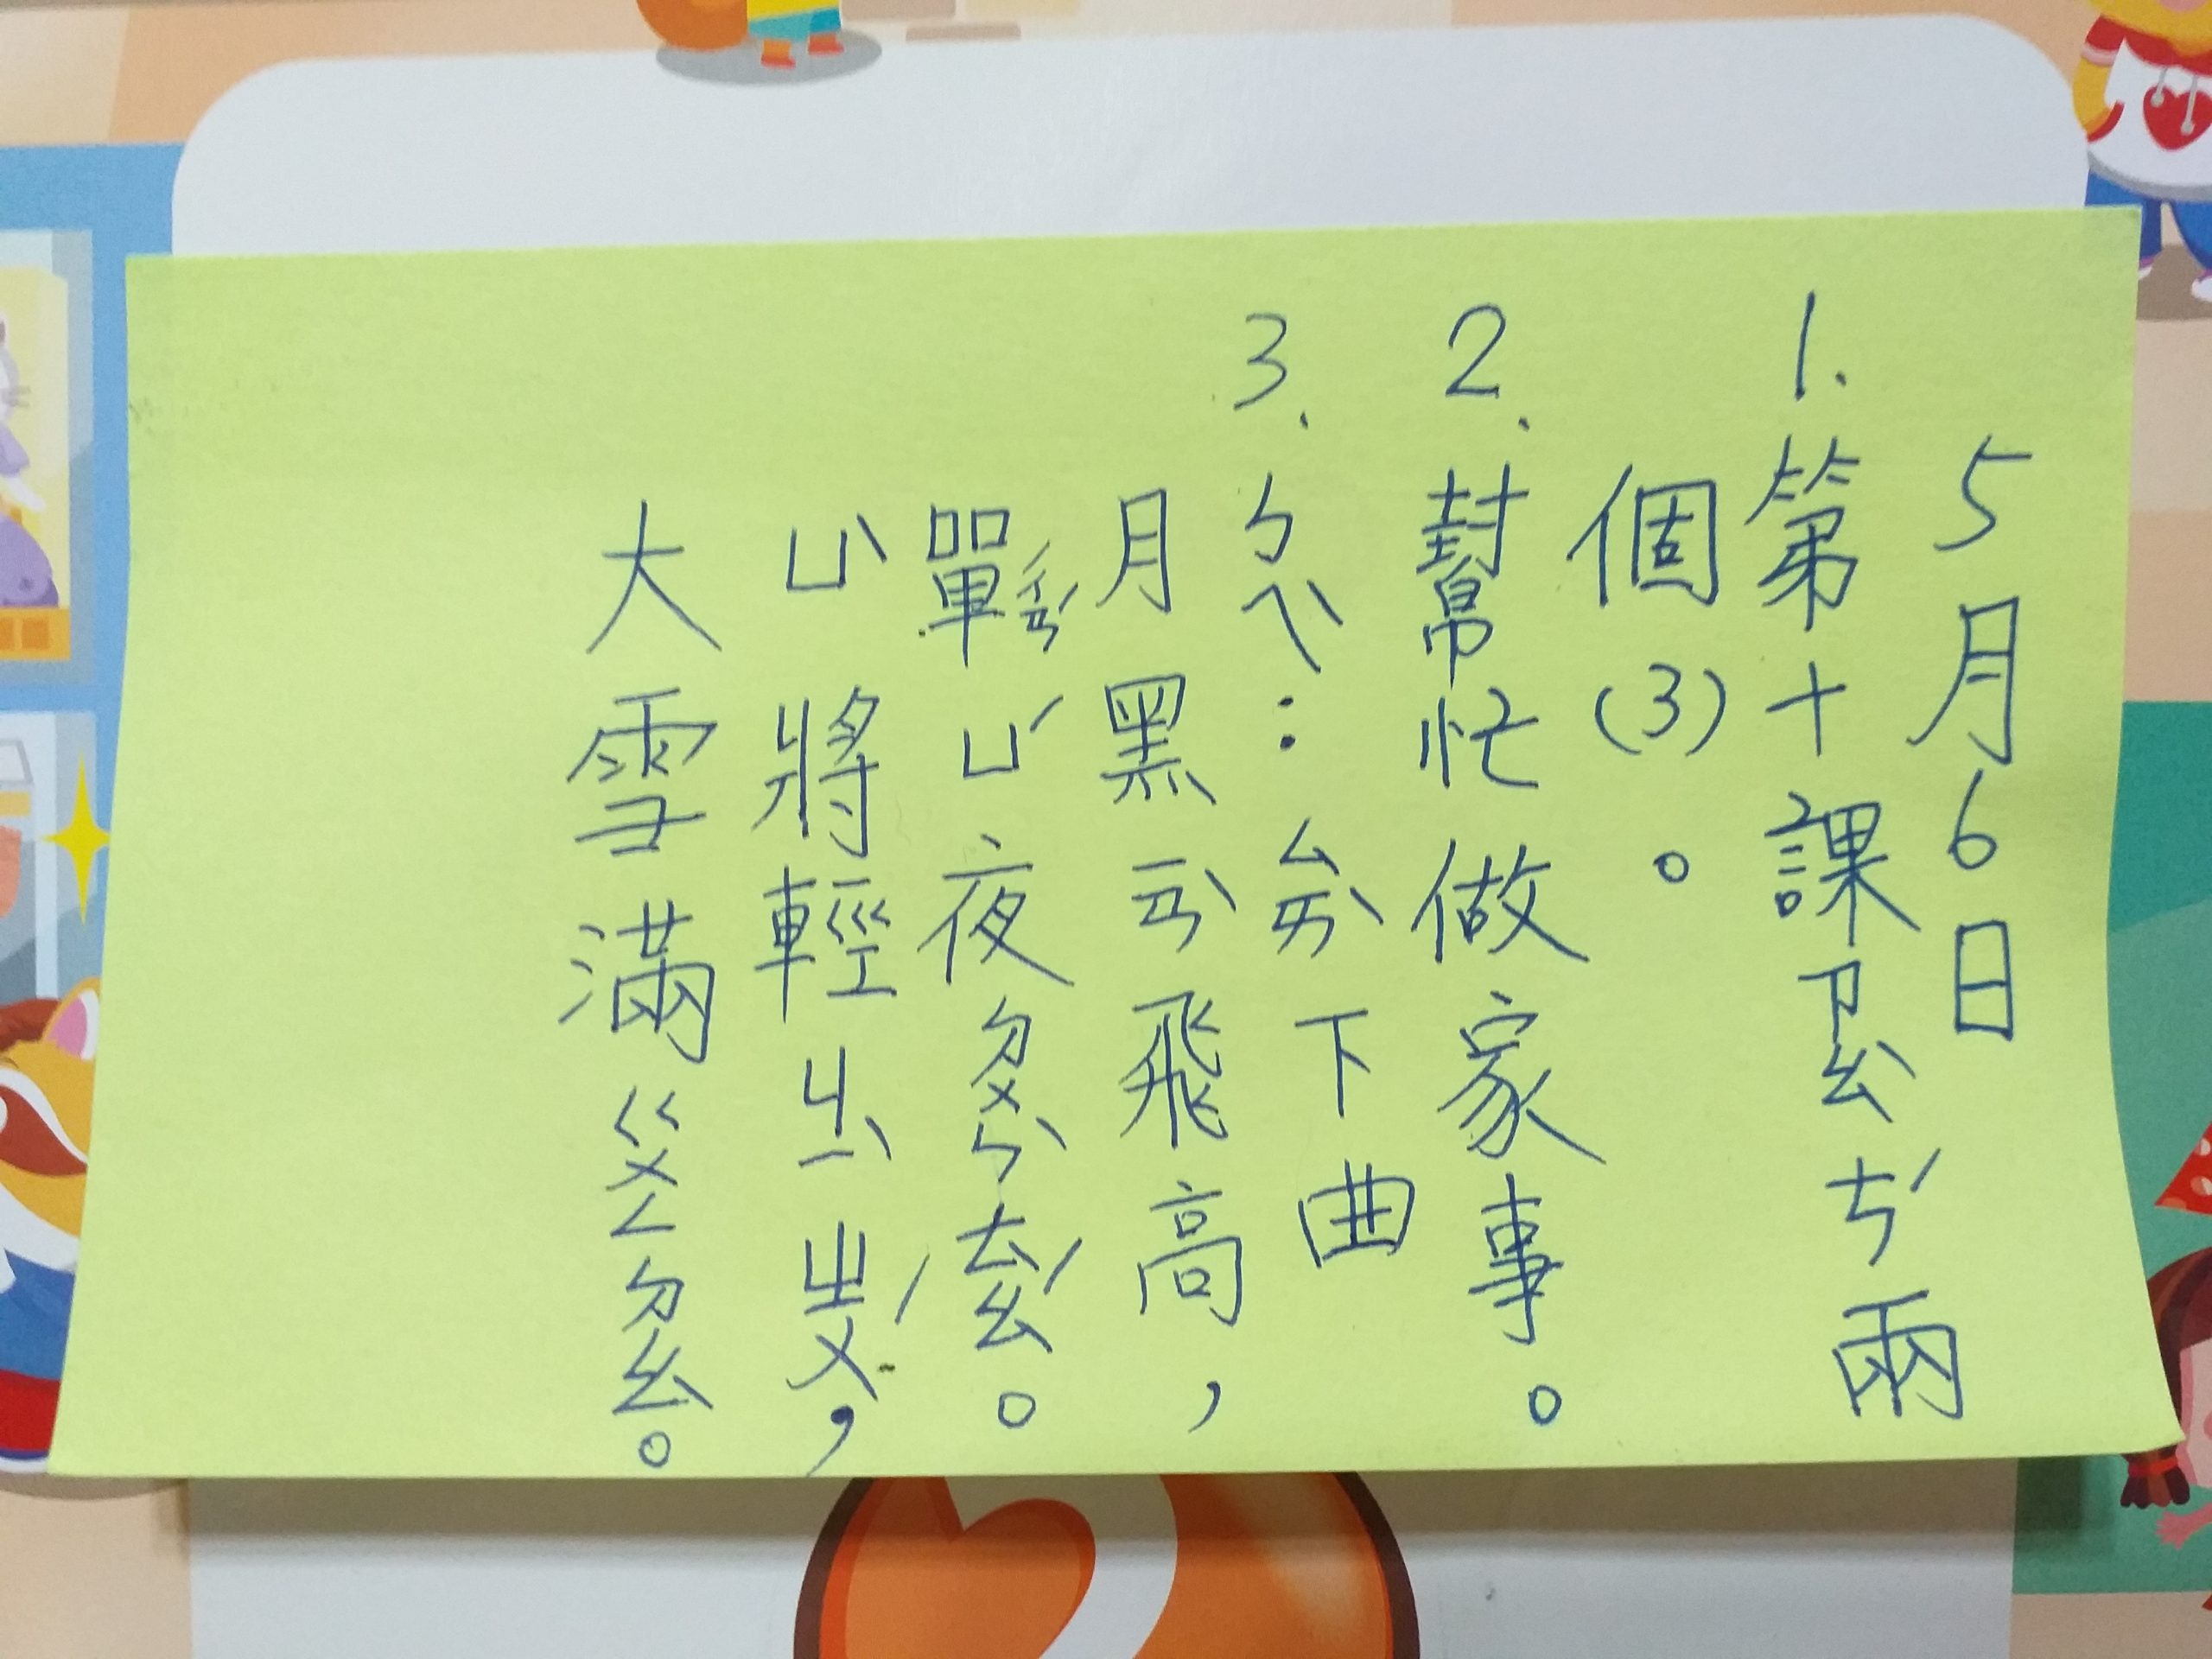 5月6日
1.第十課ㄗㄠˋㄘˊ兩
個(3)。
2.幫忙做家事。
3.ㄅㄟˋ:ㄙㄞˋ下曲
月黑ㄧㄢˋ飛高,
單ㄔㄢˊㄩˊ夜ㄉㄨㄣˋㄊㄠˊ。
ㄩˋ將輕ㄐㄧˋㄓㄨˊ,
大雪滿ㄍㄨㄥㄉㄠ。